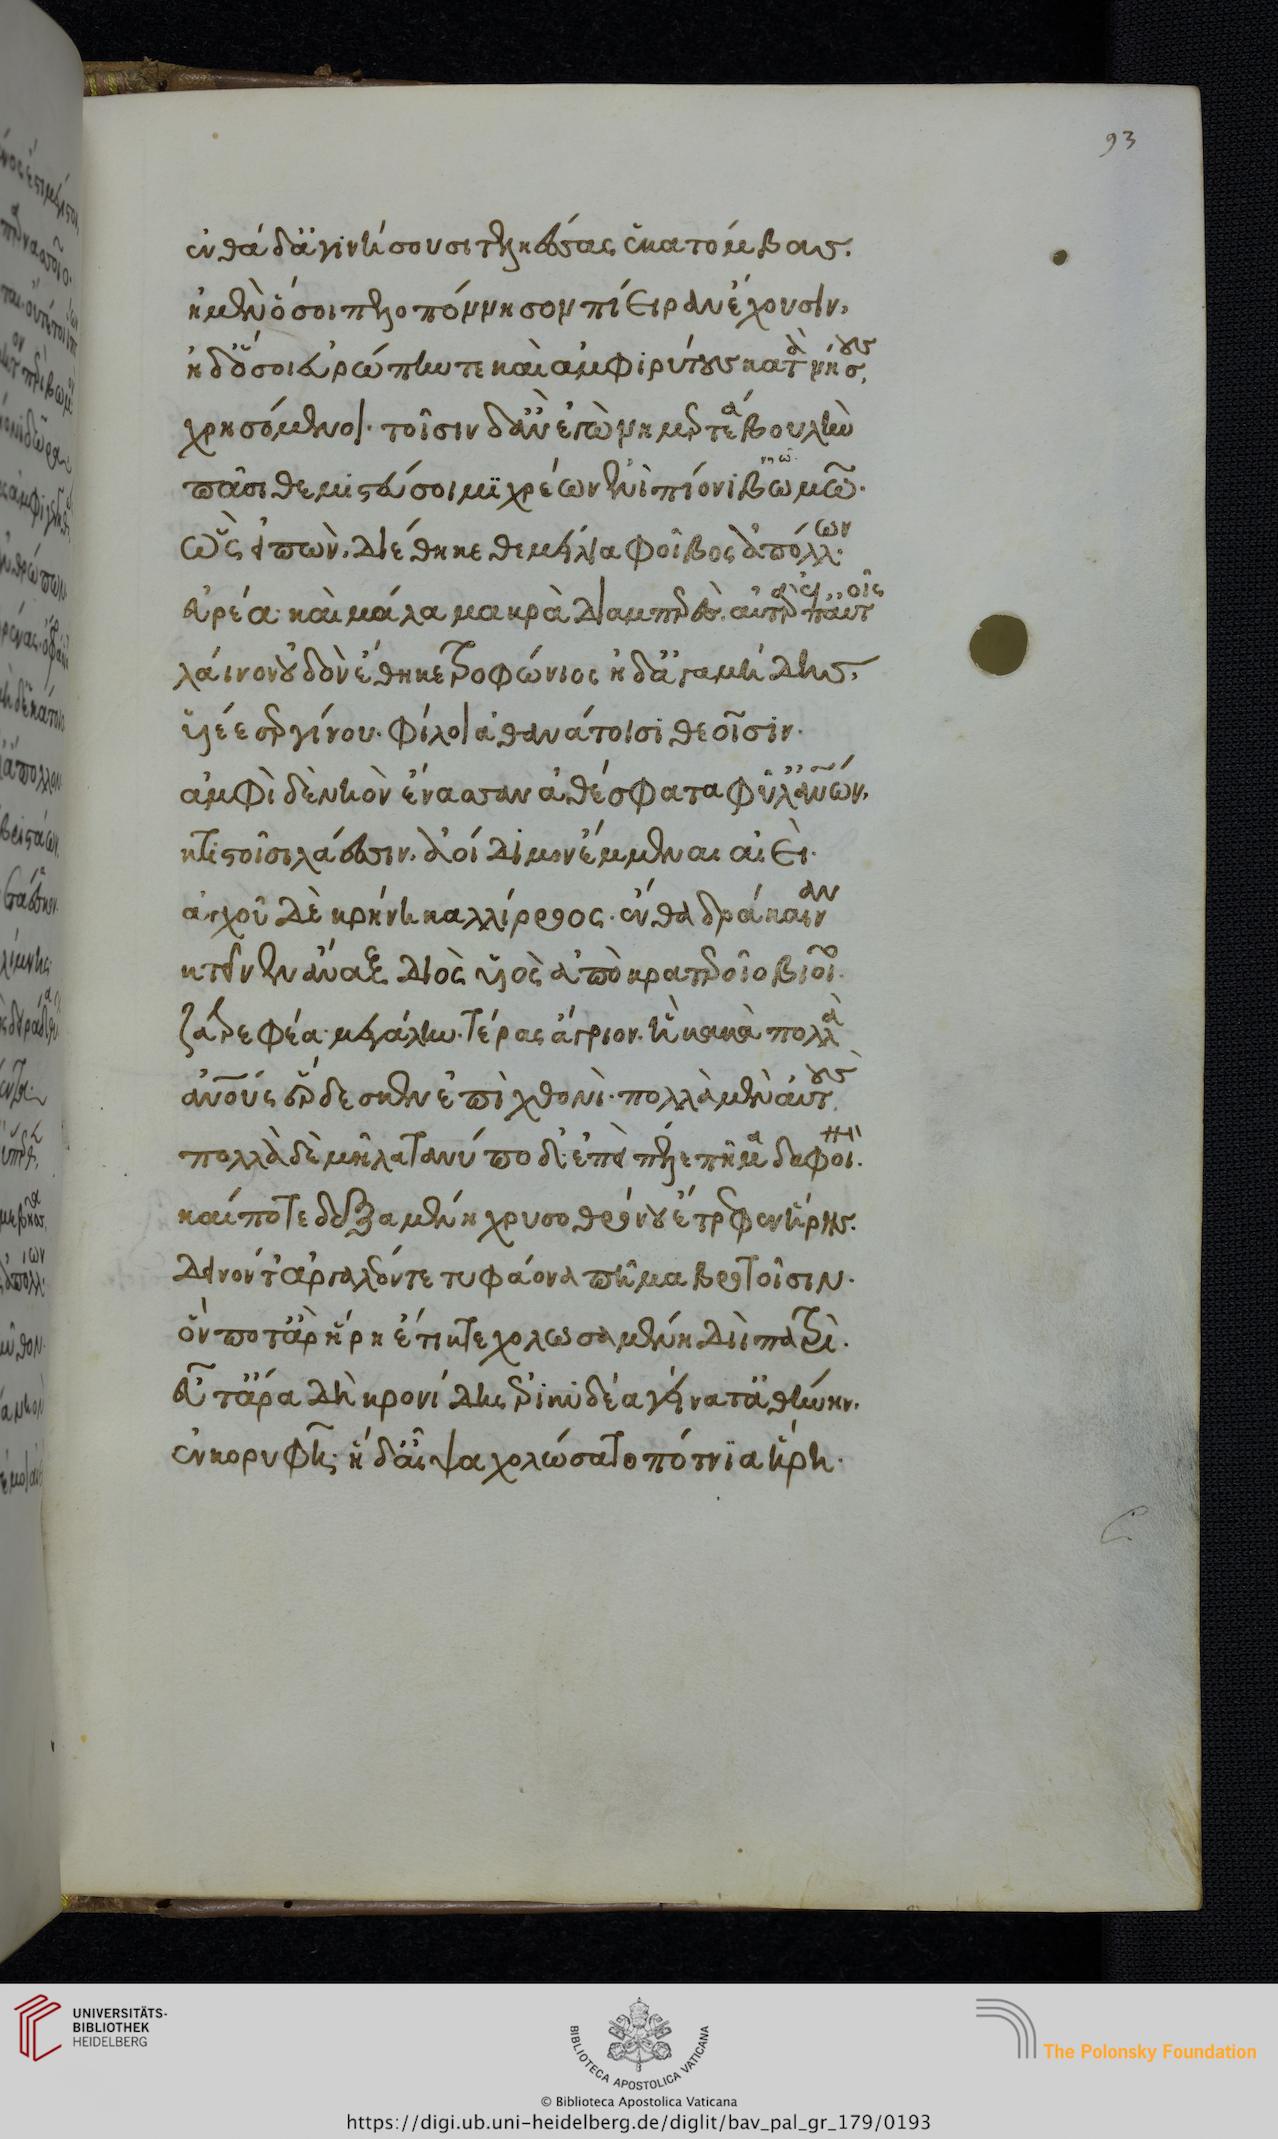 93
ἐνθά δ' ἀγινήσουσι τεληέσσας ἑκατόμβας.
ἠμὲν ὅσοι πελοπόννησον πίειραν ἔχουσιν,
ἠδ' ὅσοι εὐρώπην τε καὶ ἀμφιρύτους κατὰ νήσους,
χρησόμενοι. τοῖσιν δ' ἂν ἐγὼ νημερτέα βουλὴν
πᾶσι θεμιστεύσοιμι χρέων ἐνὶ πίονι βωμῶ.
ὣς εἰπὼν, διέθηκε θεμείλια φοῖβος ἀπόλλων
εὐρέα καὶ μάλα μακρὰ διαμπερὲς. αὐτὰρ ἐπ' αὐτοῖς
λάινον οὐδὸν ἔθηκε τροφώνιος ἠδ' ἀγαμήδης,
υἱέες ἐργίνου. φίλοι ἀθανάτοισι θεοῖσιν.
ἀμφὶ δὲ νηὸν ἔνασσαν ἀθέσφατα φῦλ' ἀνθρώπων,
κτιστοῖσι λάεσσιν. ἀοίδιμον ἔμμεναι αἰεί.
ἀγχοῦ δὲ κρήνη καλλίρροος. ἔνθα δράκαιναν
κτεῖνεν ἄναξ διὸς υἱὸς ἀπὸ κρατεροῖο βιοῖο.
ζατρεφέα μεγάλην. τέρας ἄγριον. ἣ κακὰ πολλὰ
ἀνθρώπους ἔρδεσκεν ἐπὶ χθονὶ. πολλὰ μὲν αὐτοὺς
πολλὰ δὲ μῆλα ταναύποδ'. ἐπεὶ πέλε πῆμα δαφοινὸν.
καί ποτε δεξαμένη χρυσοθρόνου ἔτρεφεν ἥρης.
δεινόν τ' ἀργαλέον τε τυφάονα πῆμα βροτοῖσιν.
ὅν ποτ' ἄρ' ἥρη ἔτικτε χολωσαμένη διὶ πατρὶ.
εὖτ' ἄρα δὴ κρονίδης ἐρικυδέα γείνατ' ἀθήνην.
ἐν κορυφῆ; ἡ δ' αἶψα χολώσατο πότνια ἥρη.
UNIVERSITÄTS-
BIBLIOTHEK
HEIDELBERG
BIBLIOTECA APOSTOLICA VATICANA
The Polonsky Foundation
© Biblioteca Apostolica Vaticana
https://digi.ub.uni-heidelberg.de/diglit/bav_pal_gr_179/0193